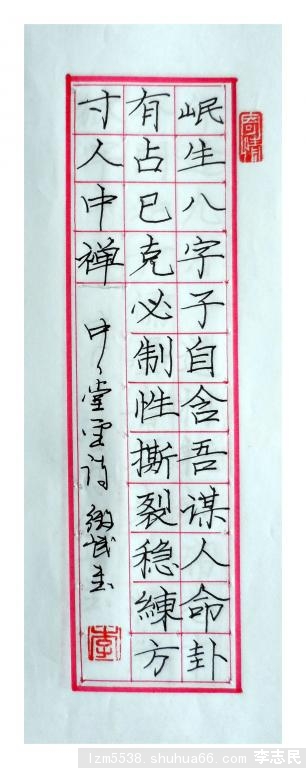 岷生八字子自含吾谋人命卦
有占已克必制性撕裂稳練方
寸人中禅
李
lzm5538.shuhua66.com 李志民